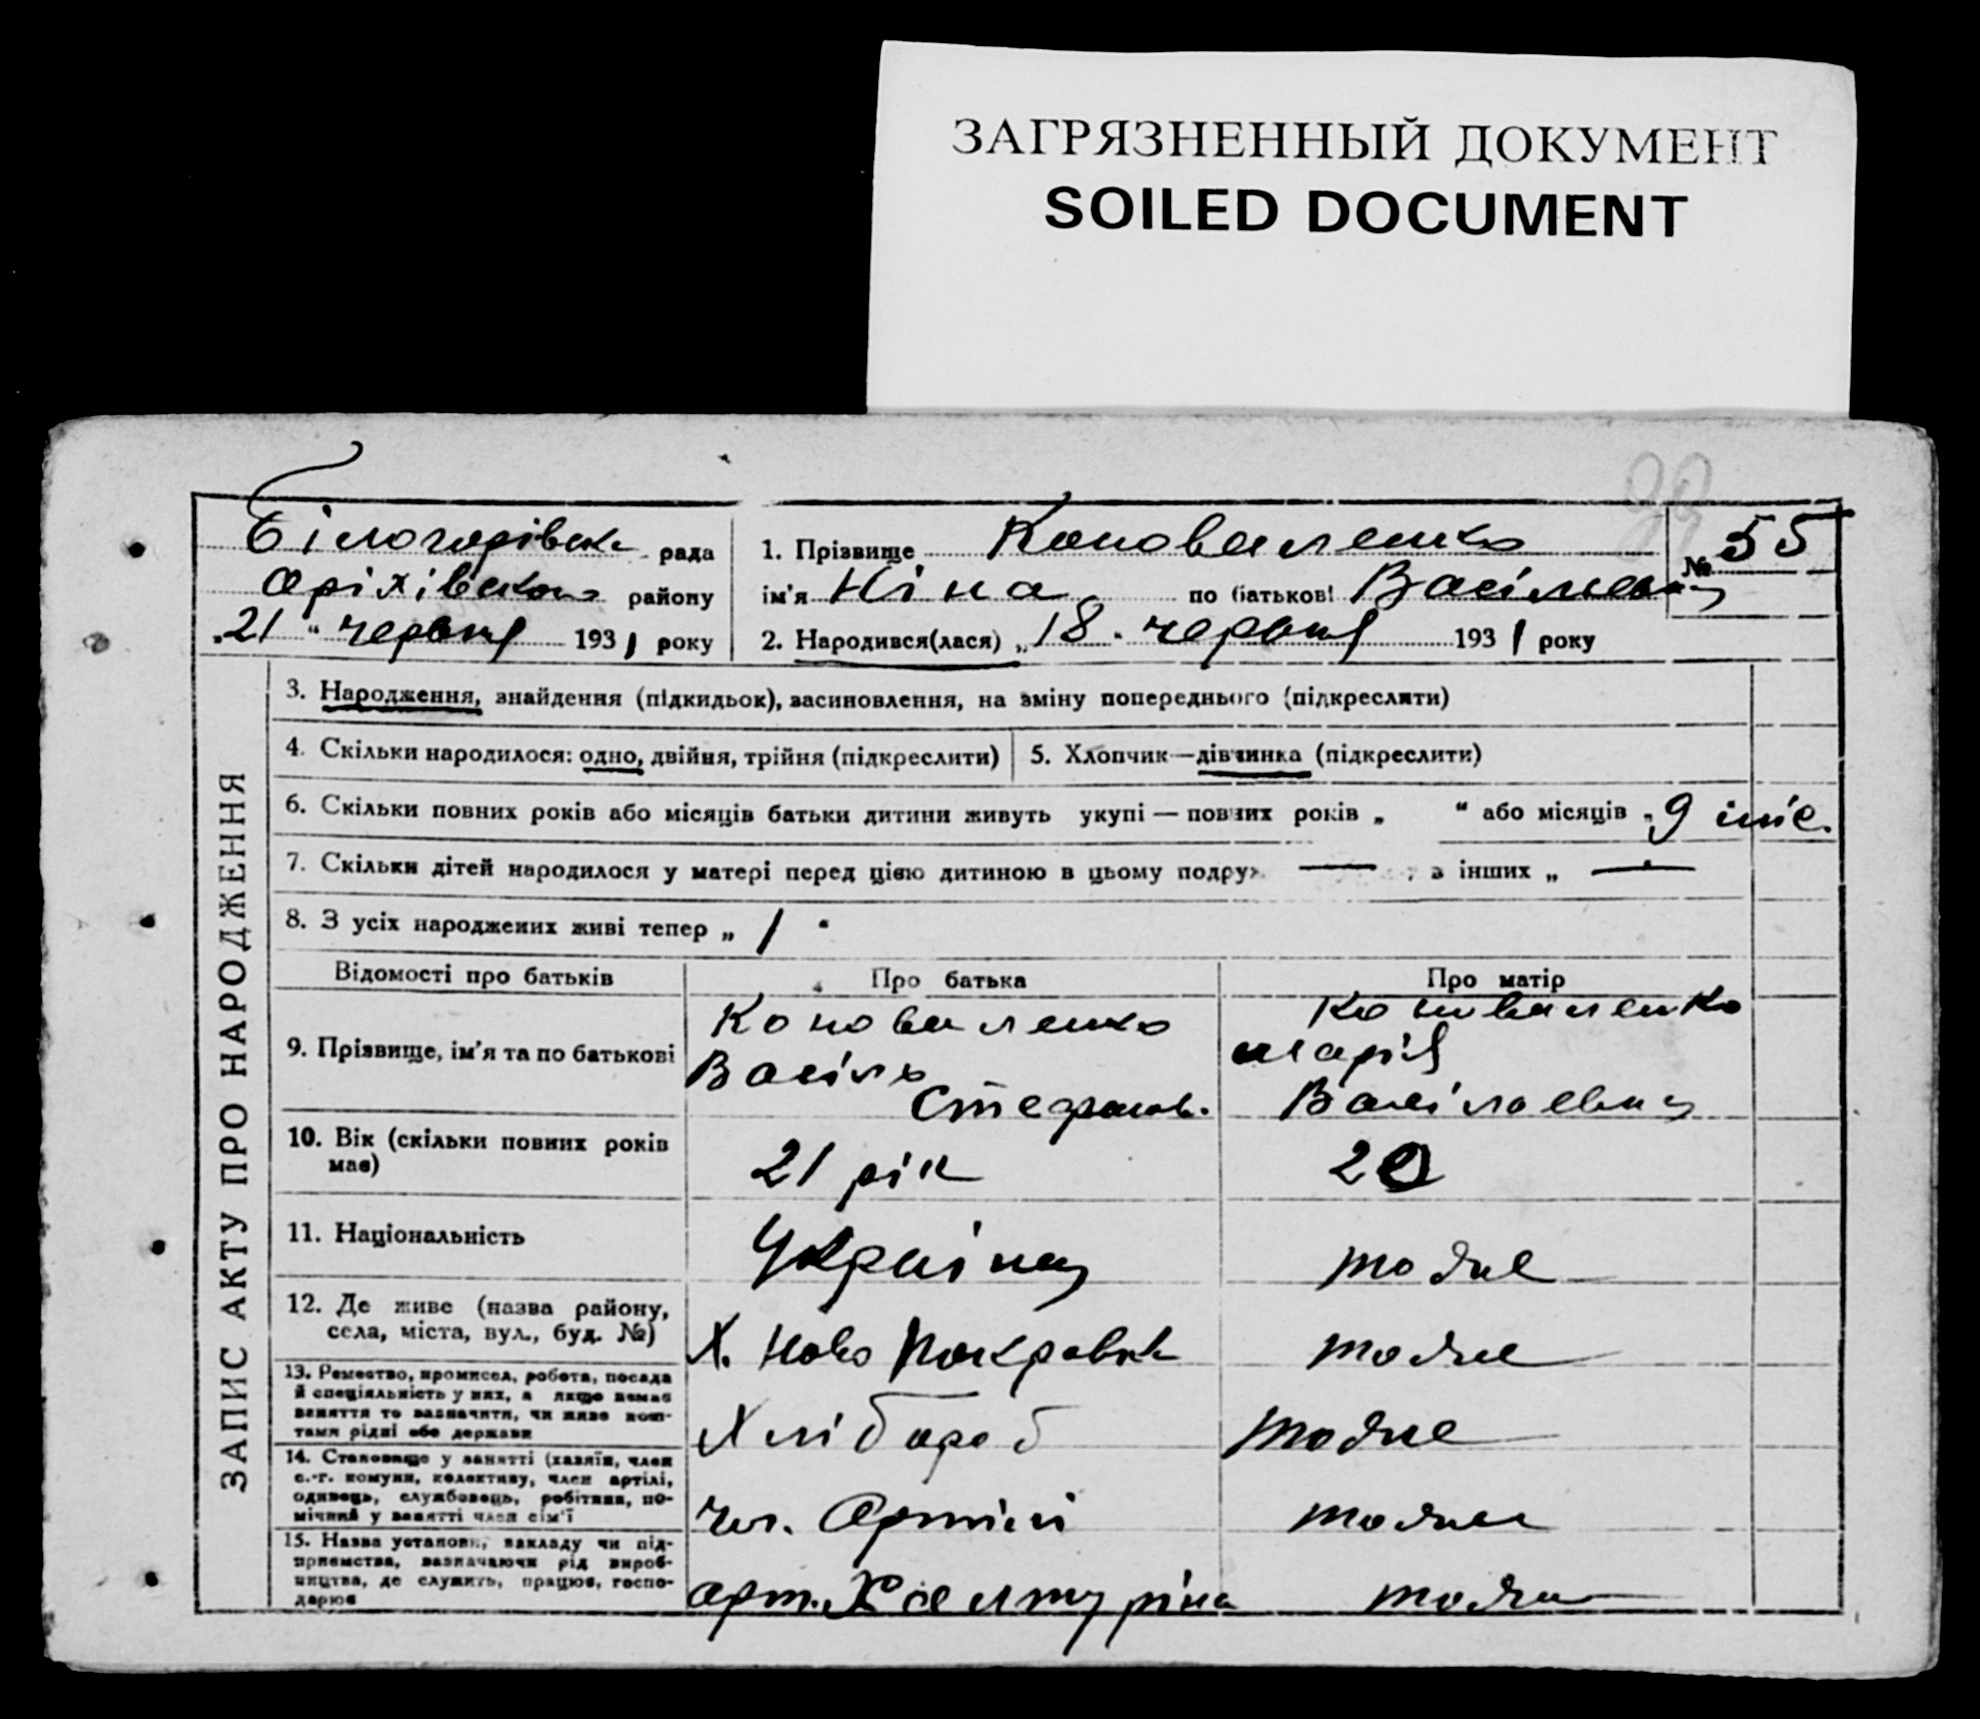 ЗАГРЯЗНЕННЫЙ ДОКУМЕНТ
SOILED DOCUMENT
Білогорівськ рада
Оріхівського району
„21 “ червня 1931 року
1. Прізвище Коноваленко
№ 55
ім'я Ніна по батькові Васільевна
2. Народився(лася) „18 “ червня 1931 року
ЗАПИС АКТУ ПРО НАРОДЖЕННЯ
3. Народження, знайдення (підкидьок), засиновлення, на зміну попереднього (підкреслити)
4. Скільки народилося: одно, двійня, трійня (підкреслити) 5. Хлопчик—дівчинка (підкреслити)
6. Скільки повних років або місяців батьки дитини живуть укупі — повних років „ “ або місяців „ 9 міс.
7. Скільки дітей народилося у матері перед цією дитиною в цьому подруж — ; в інших „ —
8. З усіх народжених живі тепер „ 1 “
Відомості про батьків Про батька Про матір
9. Прізвище, ім'я та по батькові
Коноваленко
Василь
Стефанов.
Коноваленко
Марія
Васілаевна
10. Вік (скільки повних років має) 21 рік 20
11. Національність Українец тоже
12. Де живе (назва району, села, міста, вул., буд. №) Х. Ново Покровськ тоже
13. Ремество, промисел, робота, посада й спеціяльність у них, а якщо немає заняття то зазначити, чи живе коштами рідні або держави Хлібороб тоже
14. Становище у занятті (хазяїн, член с.-г. комуни, колективу, член артілі, одинець, службовець, робітник, помічний у занятті член сім'ї чл. Артілі тоже
15. Назва установи, закладу чи підприємства, зазначаючи рід виробництва, де служить, працює, господарює арт. Халтуріна тоже